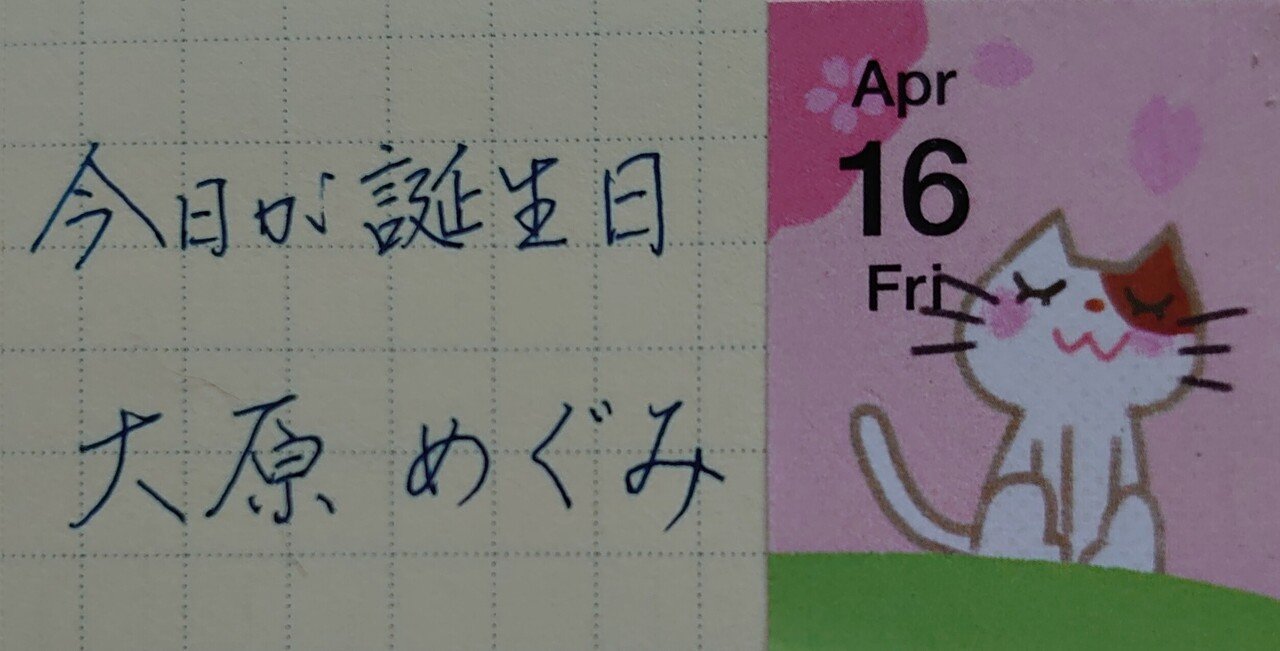 今日が誕生日
大原 めぐみ
Apr
16
Fri